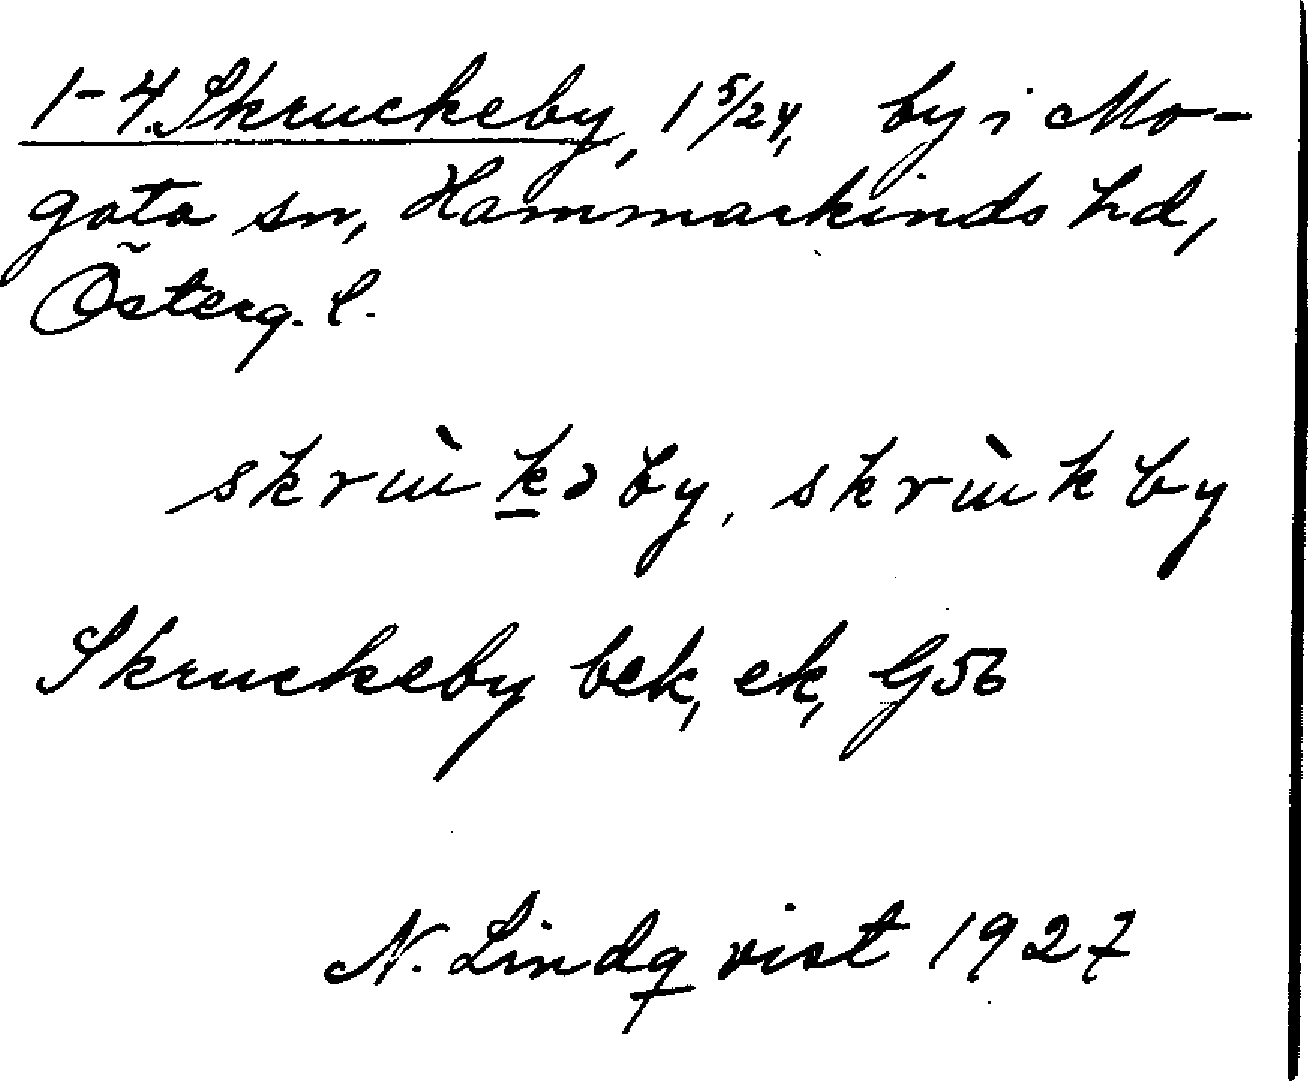 1-4. Skruckeby, 1 5/24, by i Mo-
gata sn, Hammarkinds hd,
Österg. l.
skrùkəby, skrùkby
Skruckeby bek, ek, G56
N. Lindqvist 1927